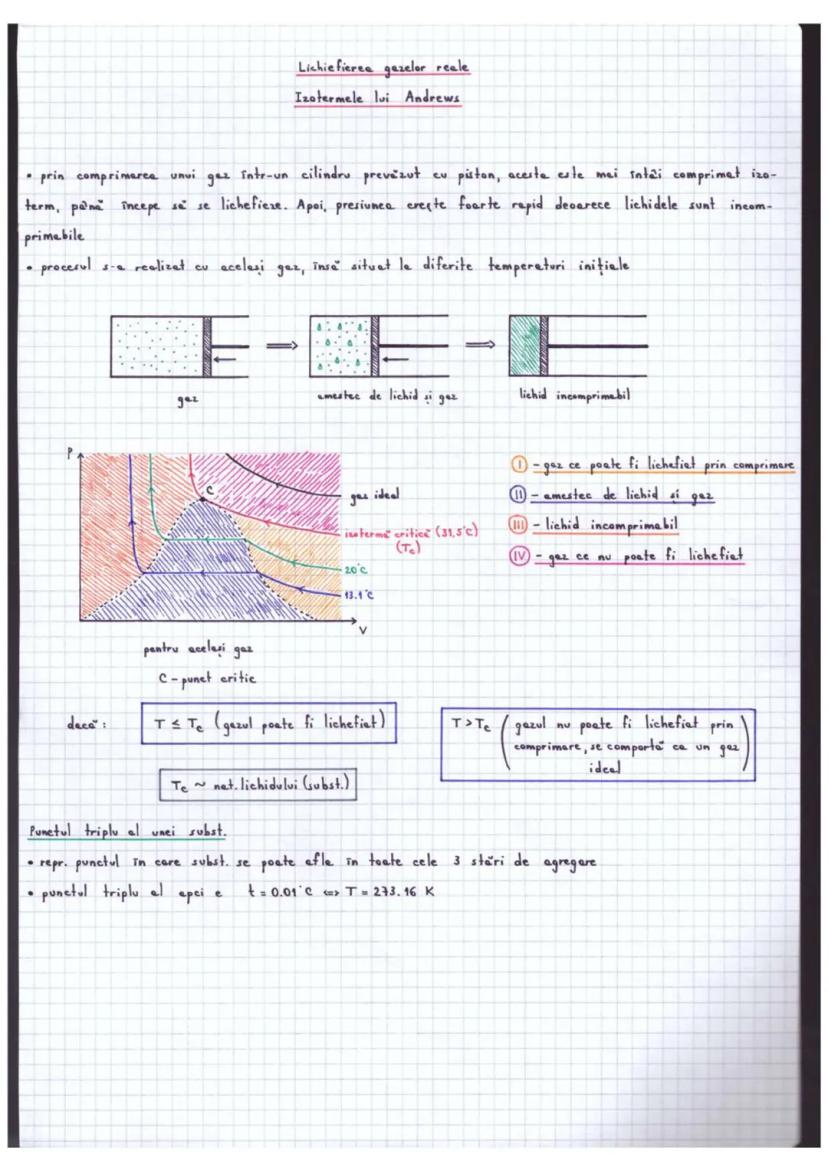 Lichiefierea gazelor reale
Izotermele lui Andrews
• prin comprimarea unui gaz într-un cilindru prevăzut cu piston, acesta este mai întâi comprimat izo-
term, până începe să se lichefieze. Apoi, presiunea crește foarte rapid deoarece lichidele sunt incom-
primabile
• procesul s-a realizat cu același gaz, însă situat la diferite temperaturi inițiale
gaz
amestec de lichid și gaz
lichid incomprimabil
P
C
gaz ideal
izotermă critică (31,5°C)
(Tc)
20°C
13.1°C
V
pentru același gaz
C - punct critic
I - gaz ce poate fi lichefiat prin comprimare
II - amestec de lichid și gaz
III - lichid incomprimabil
IV - gaz ce nu poate fi lichefiat
dacă: T ≤ Tc (gazul poate fi lichefiat)
T > Tc (gazul nu poate fi lichefiat prin
comprimare, se comportă ca un gaz
ideal)
Tc ~ nat. lichidului (subst.)
Punctul triplu al unei subst.
• repr. punctul în care subst. se poate afla în toate cele 3 stări de agregare
• punctul triplu al apei e t = 0.01°C <=> T = 273.16 K